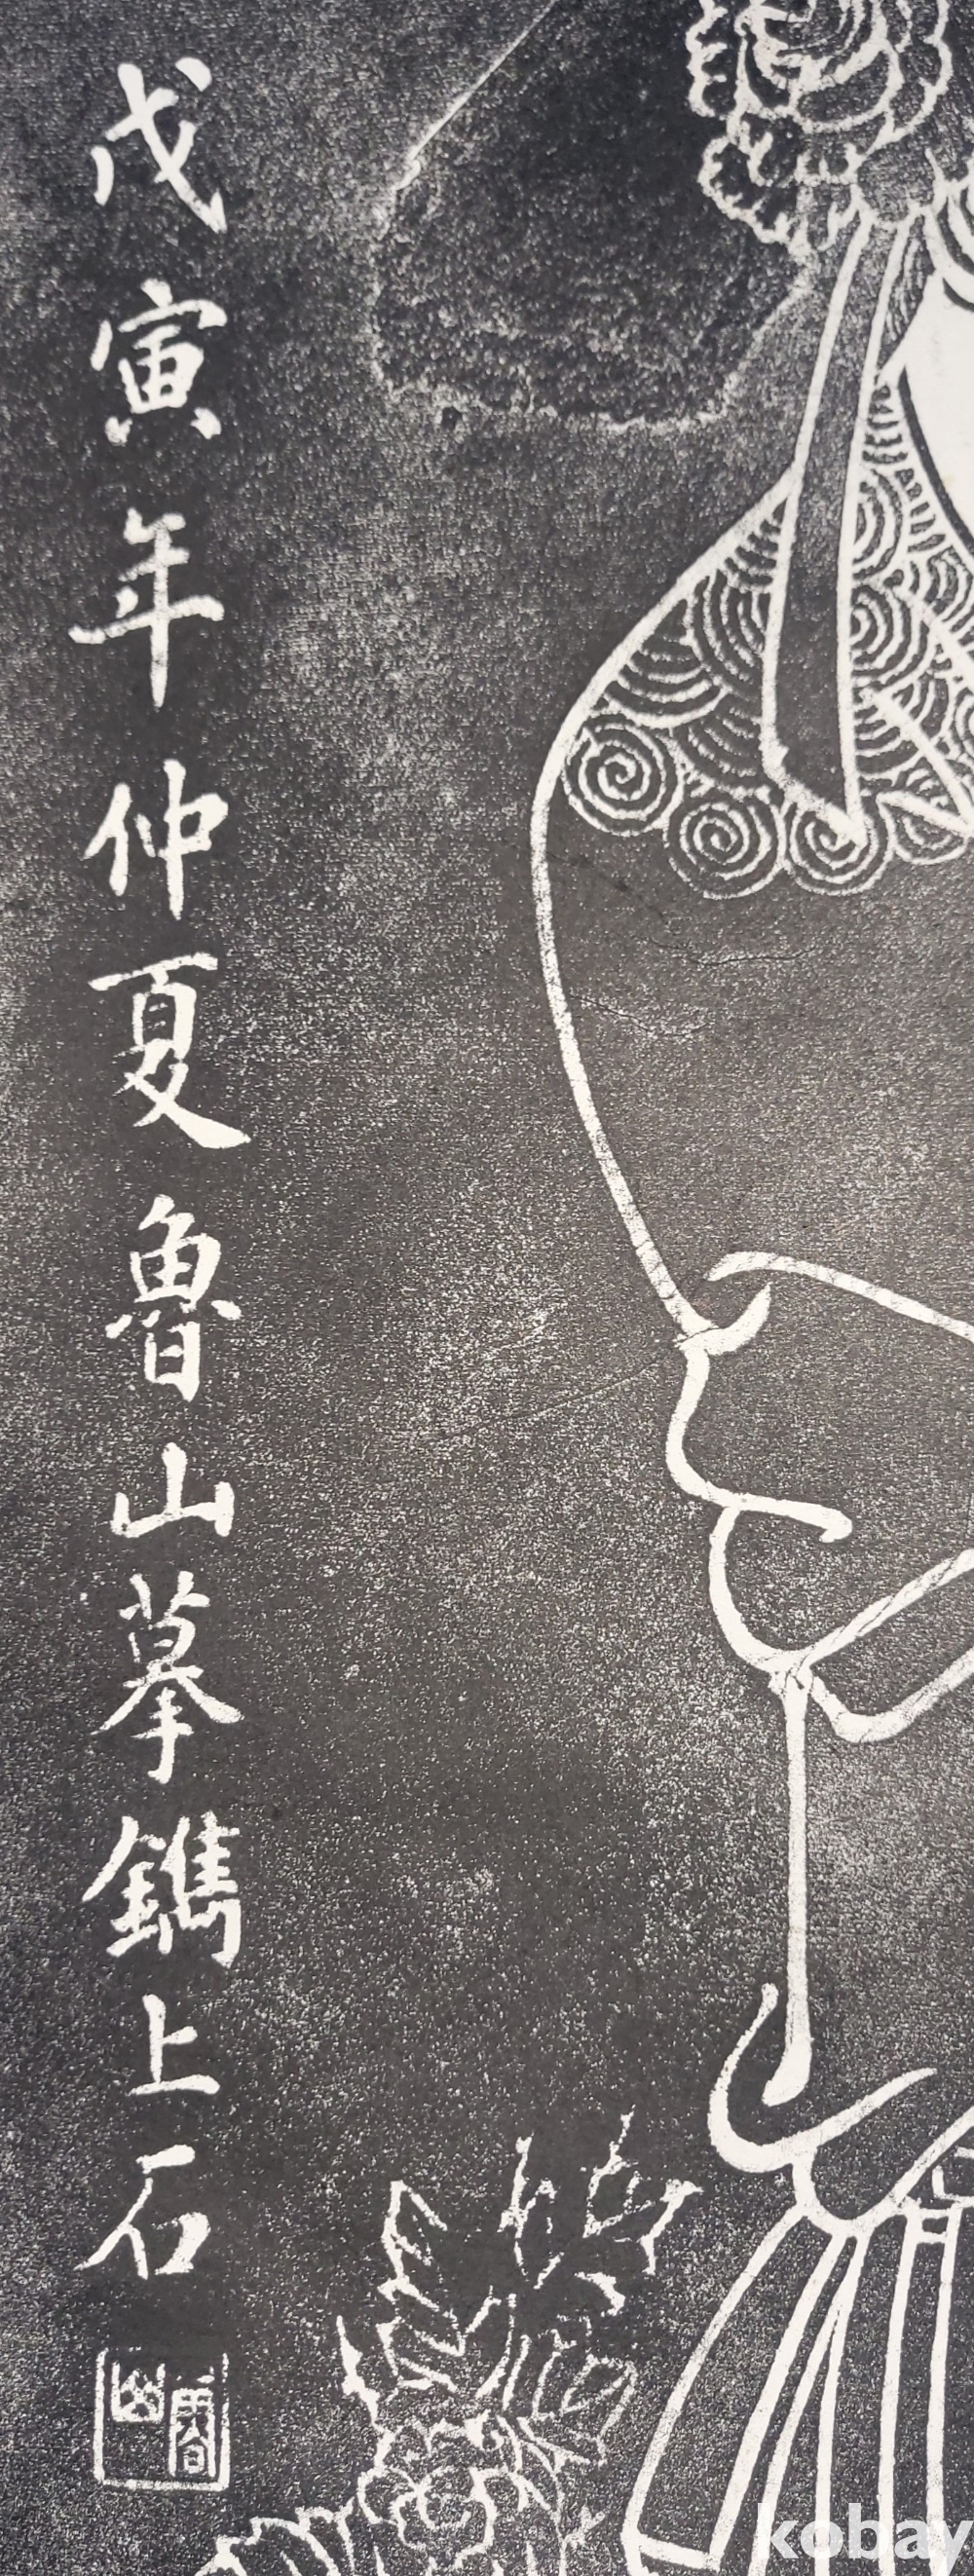 戊寅年仲夏魯山摹鐫上石
魯山
kobay